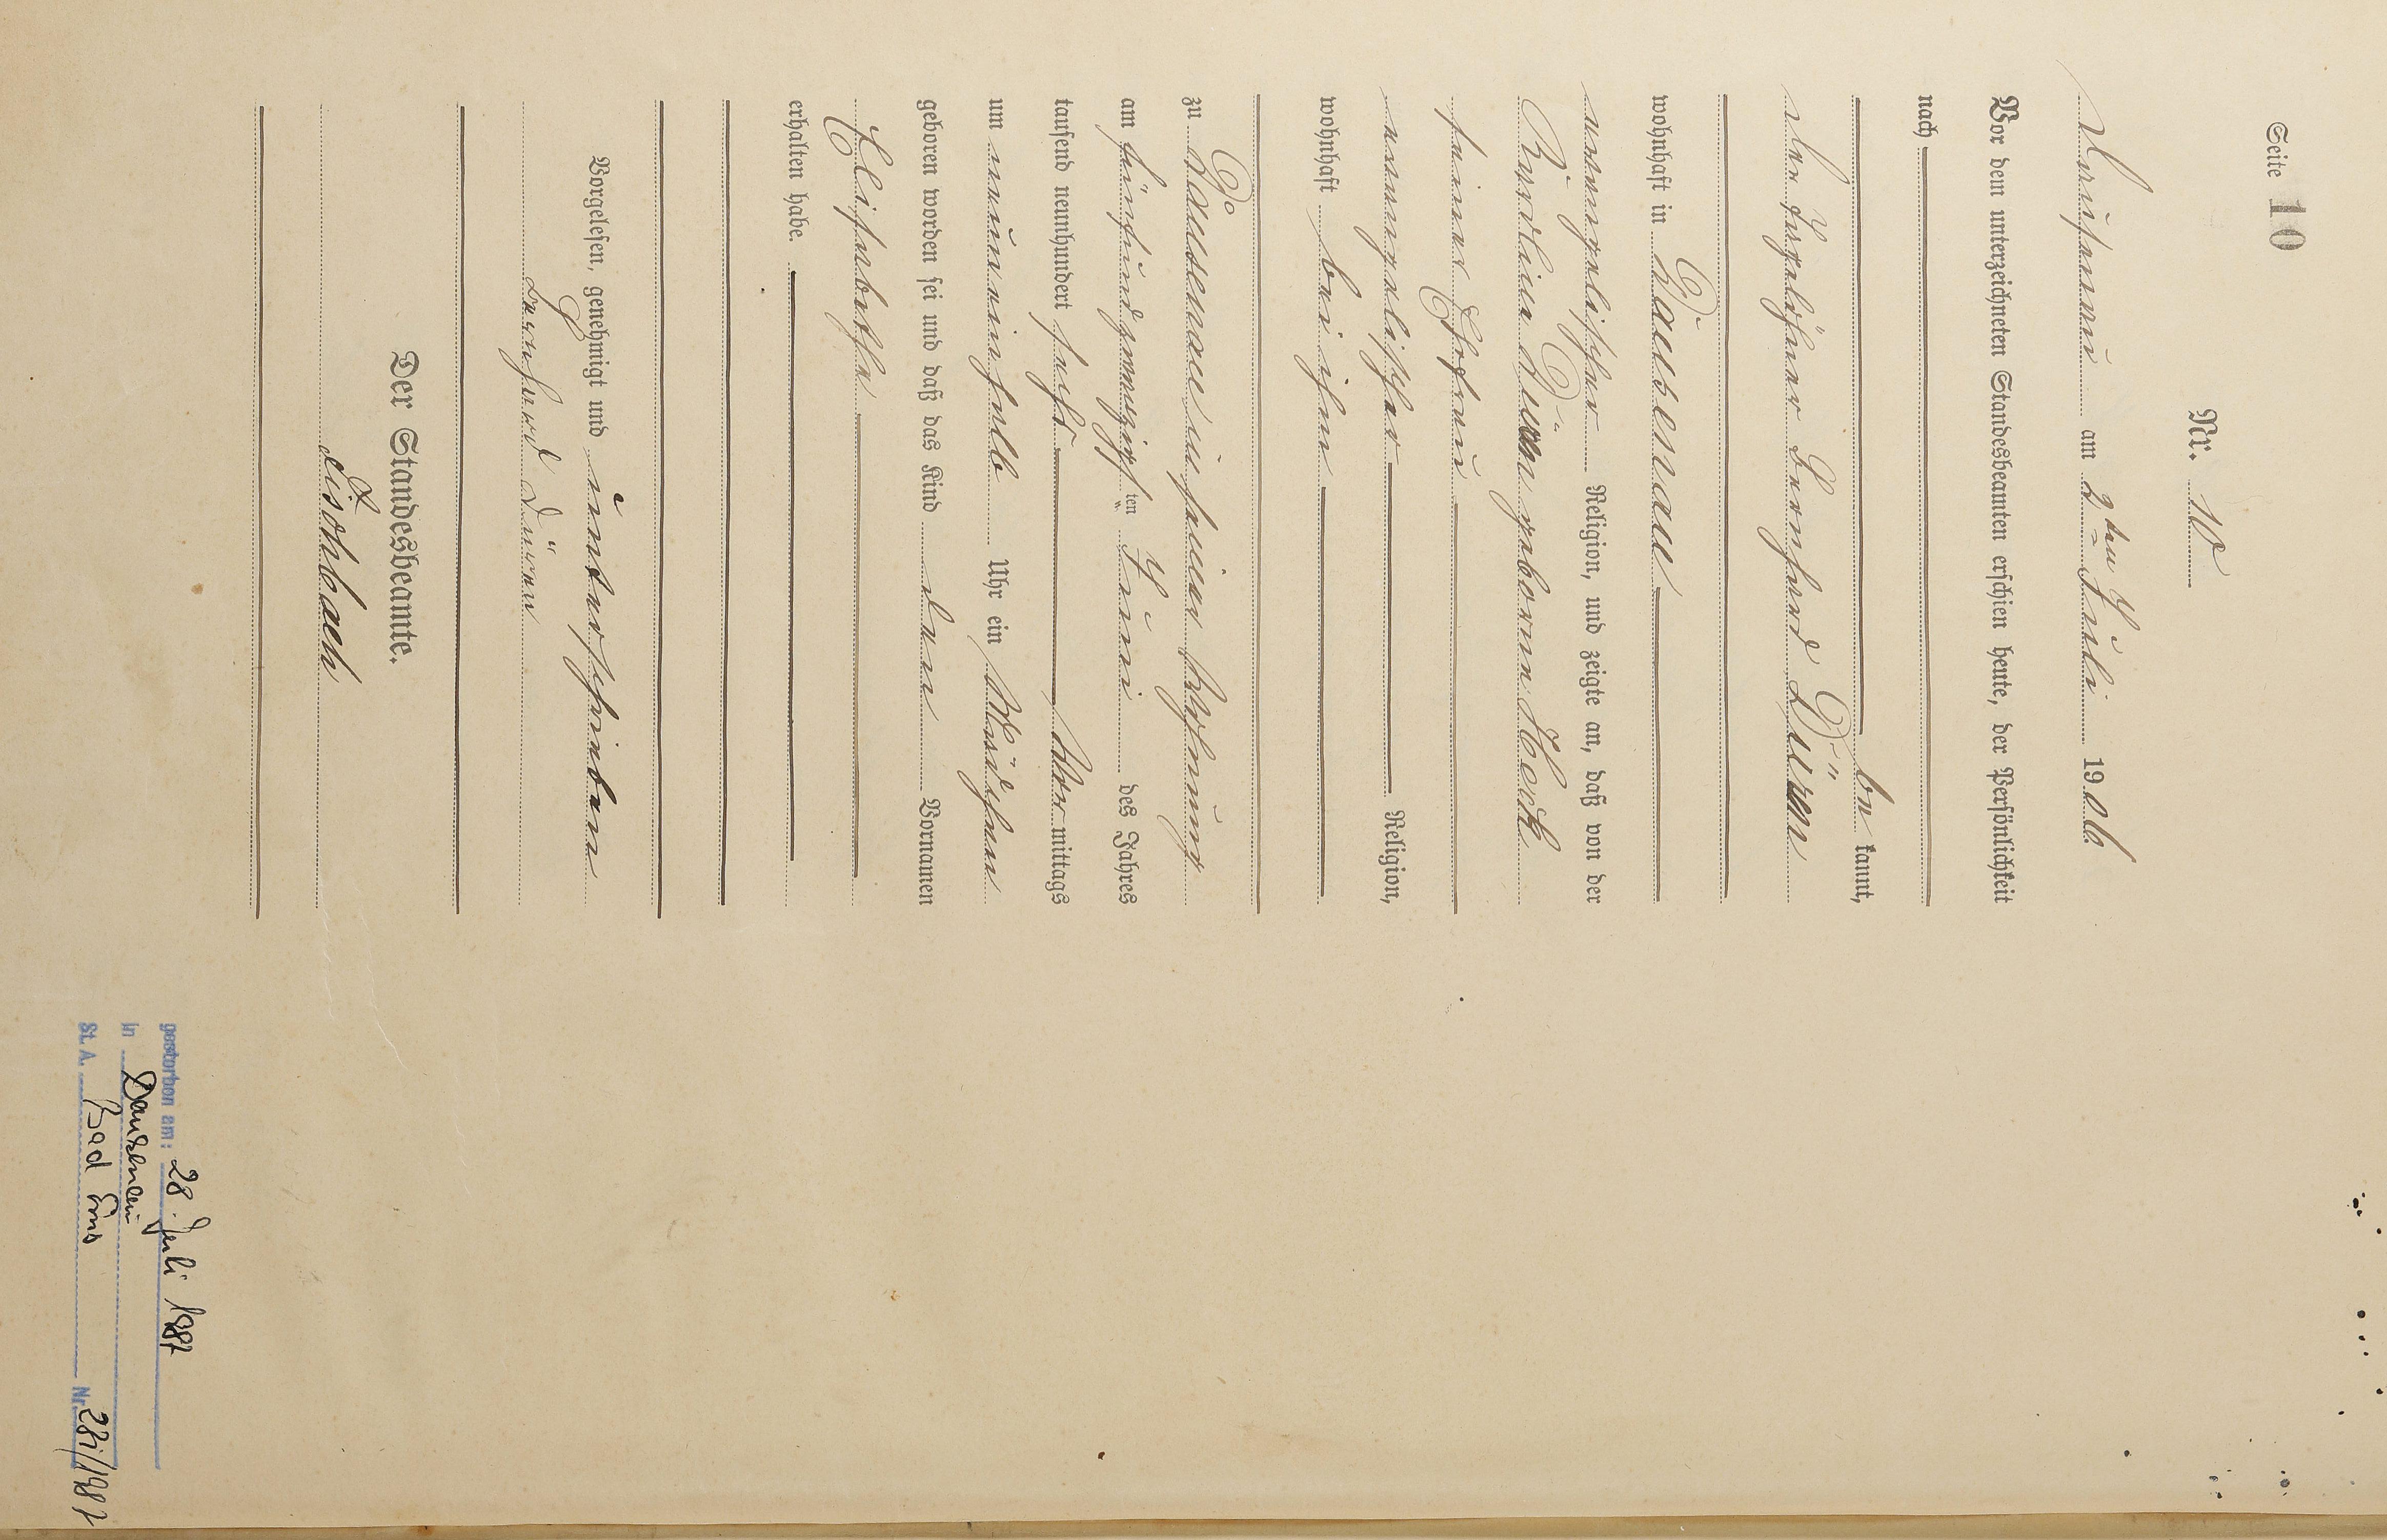 Seite 10
Nr. 10
Dausenau am 2ten Juli 1906.
Vor dem unterzeichneten Standesbeamten erschien heute, der Persönlichkeit
nach
be kannt,
der Tagelöhner Bernhard Düren
wohnhaft in Dausenau
evangelischer Religion, und zeigte an, daß von der
Düren geborene Heck
seiner Ehefrau
evangelischer Religion,
wohnhaft bei ihm
zu Dausenau in seiner Wohnung
am fünfundzwanzigsten Juni des Jahres
tausend neunhundert sechs Vor mittags
um neuneinhalb Uhr ein Mädchen
geboren worden sei und daß das Kind den Vornamen
Elisabetha
erhalten habe.
Vorgelesen, genehmigt und unterschrieben
Bernhard Düren
Der Standesbeamte.
Lisohbach
gestorben am: 28. Juli 1987
in Dausenau
St. A. Bad Ems Nr. 281/1987